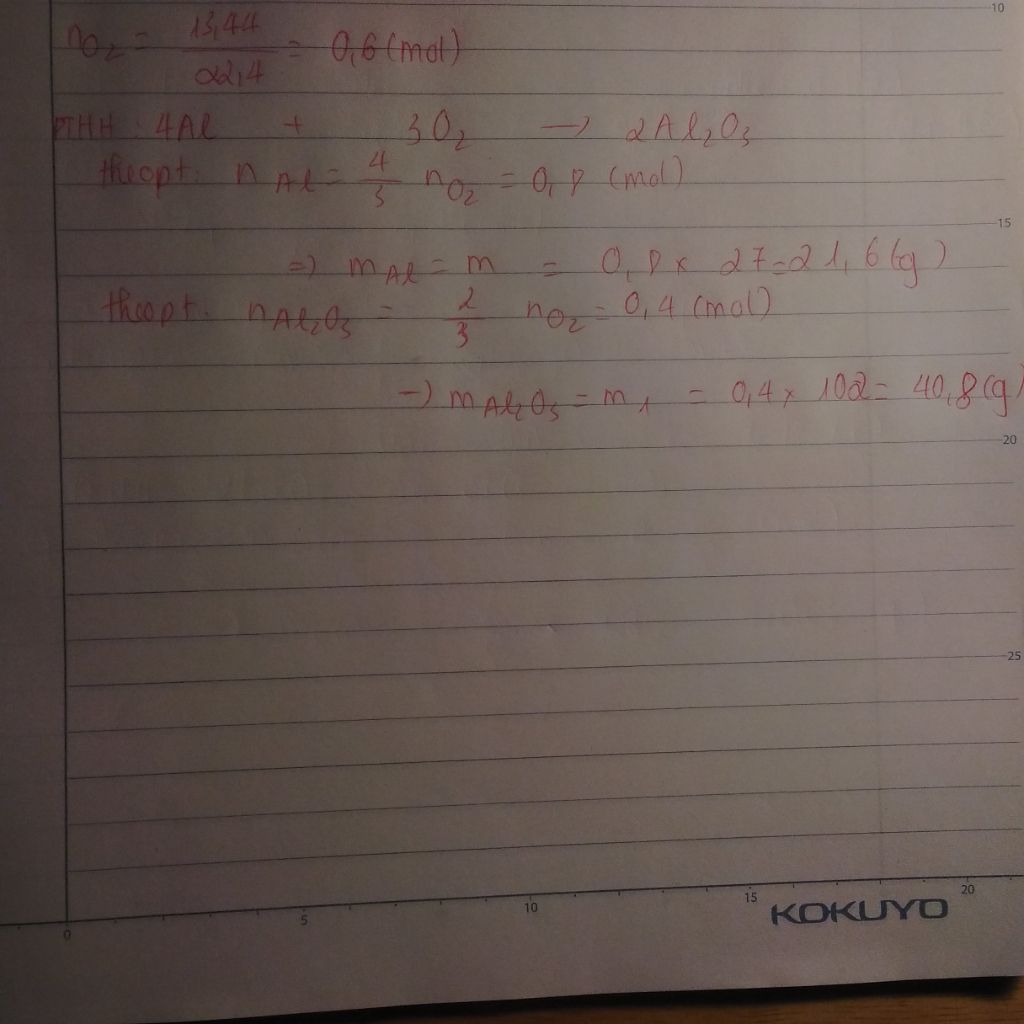 10
nO₂ = 13,44 / 22,4 = 0,6 (mol)
PTHH : 4Al + 3O₂ → 2Al₂O₃
theo pt: n Al = 4/3 nO₂ = 0,8 (mol)
15
=> m Al = m = 0,8 x 27 = 21,6 (g)
theo pt: nAl₂O₃ = 2/3 nO₂ = 0,4 (mol)
→ mAl₂O₃ = m₁ = 0,4 x 102 = 40,8 (g)
20
25
0 5 10 15 20
KOKUYO